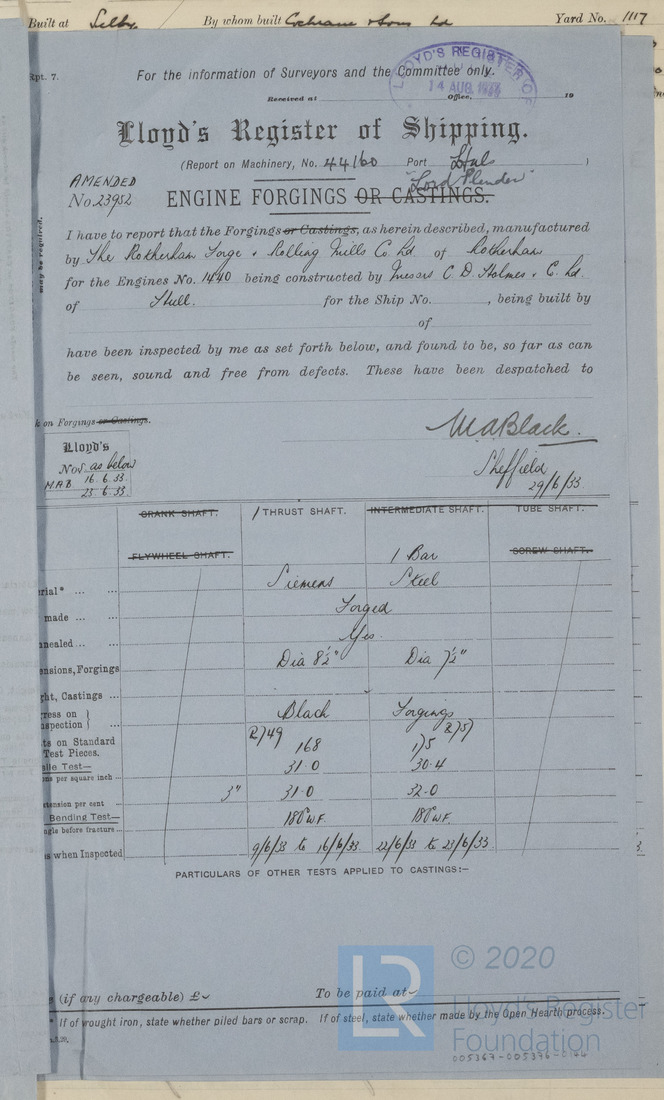 Built at Selby By whom built Cochrane & Sons Ld Yard No. 1117
Rpt. 7.
For the information of Surveyors and the Committee only.
LLOYD'S REGISTER OF
14 AUG
Received at Office, 19
Lloyd's Register of Shipping.
(Report on Machinery, No. 44160 Port Hull )
"Lord Plender"
AMENDED
No. 23952 ENGINE FORGINGS OR CASTINGS.
may be required.
I have to report that the Forgings or Castings, as herein described, manufactured
by The Rotherham Forge & Rolling Mills Co Ld of Rotherham
for the Engines No. 1440 being constructed by Messrs C. D. Holmes & C. Ld.
of Hull. for the Ship No. , being built by
of
have been inspected by me as set forth below, and found to be, so far as can
be seen, sound and free from defects. These have been despatched to
k on Forgings or Castings.
Lloyd's
Nos. as below
M.A.B 16.6.33.
23.6.33
M.A. Black.
Sheffield
29/6/33
CRANK SHAFT. 1 THRUST SHAFT. INTERMEDIATE SHAFT. TUBE SHAFT.
FLYWHEEL SHAFT. 1 Bar SCREW SHAFT.
rial* ... ... Siemens Steel
made ... ... Forged
nnealed ... ... Yes
nsions, Forgings Dia 8½" Dia 7½"
ght, Castings ...
ress on } Black Forgings
spection } ...
2749 2757
ts on Standard 168 175
Test Pieces.
sile Test— 31.0 30.4
ons per square inch ...
3" 31.0 32.0
xtension per cent ...
Bending Test— 180° W.F. 180° W.F.
ngle before fracture ...
s when Inspected 9/6/33 to 16/6/33 22/6/33 to 23/6/33
PARTICULARS OF OTHER TESTS APPLIED TO CASTINGS:—
LR
© 2020
Lloyd's Register
Foundation
(if any chargeable) £ To be paid at
* If of wrought iron, state whether piled bars or scrap. If of steel, state whether made by the Open Hearth process.
005367-005376-0144